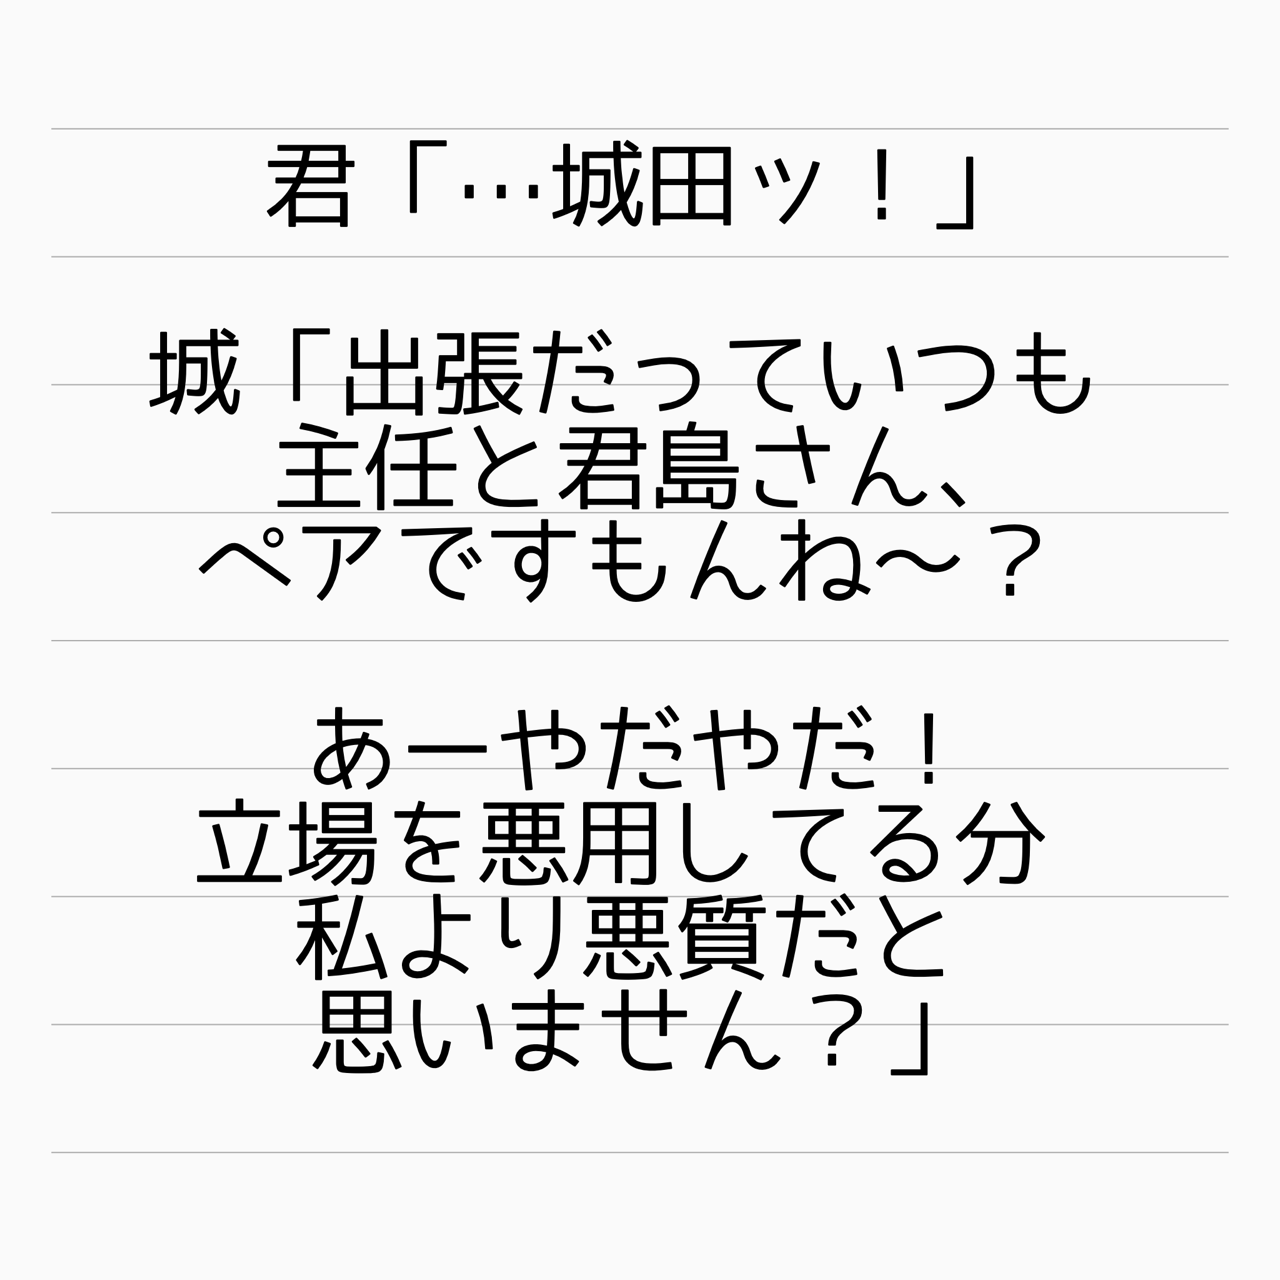 君「…城田ッ！」
城「出張だっていつも
主任と君島さん、
ペアですもんね〜？
あーやだやだ！
立場を悪用してる分
私より悪質だと
思いません？」